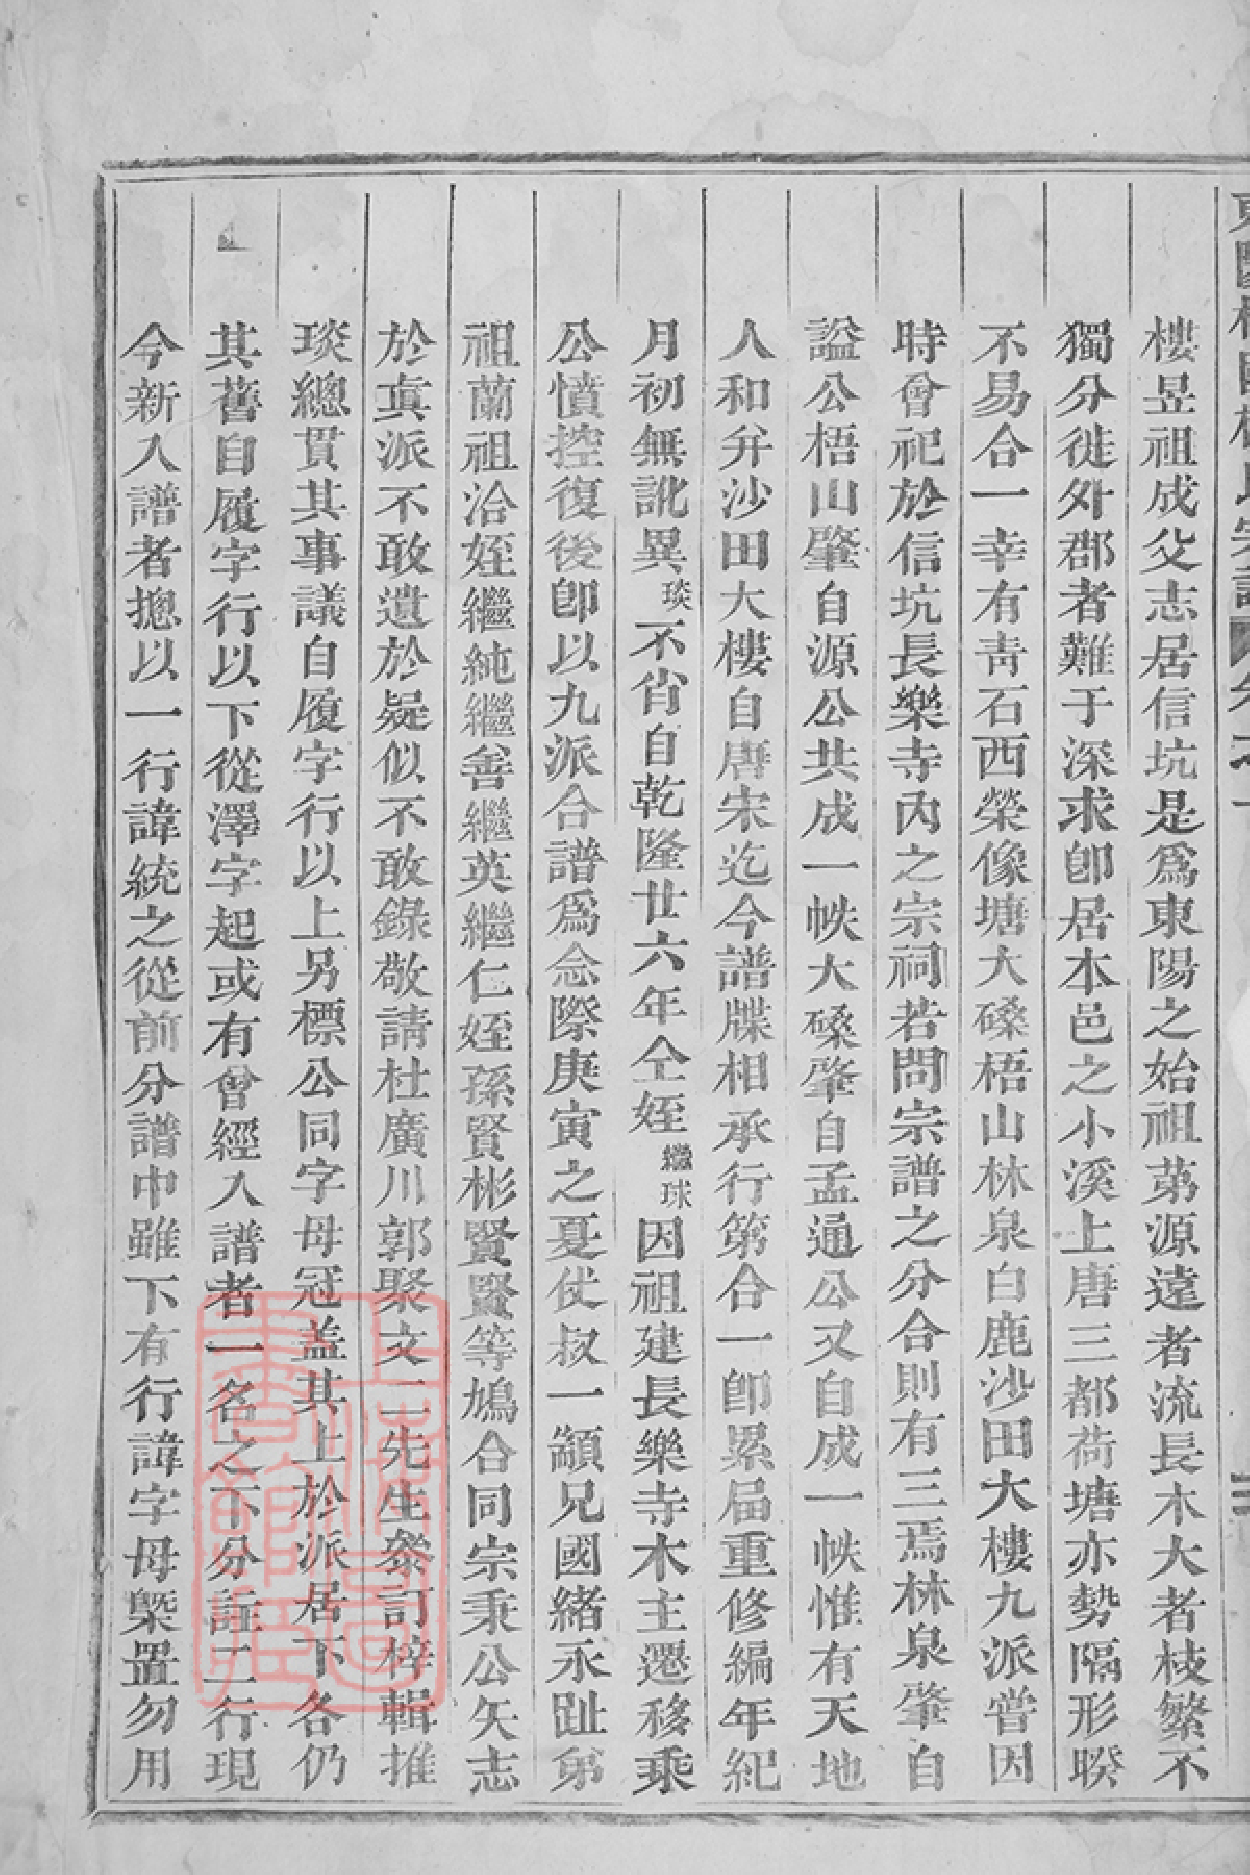 樓昱祖成父志居信坑是爲東陽之始祖苐源遠者流長木大者枝繁不
獨分徙外郡者難于深求卽居本邑之小溪上唐三都荷塘亦勢隔形暌
不易合一幸有靑石西榮像塘大磉梧山林泉白鹿沙田大樓九派嘗因
時會祀於信坑長樂寺內之宗祠若問宗譜之分合則有三焉林泉肇自
謚公梧山肇自源公共成一帙大磉肇自孟通公又自成一帙惟有天地
人和幷沙田大樓自唐宋迄今譜牒相承行第合一卽累届重修編年紀
月初無訛異琰不省自乾隆廿六年仝姪繼球因祖建長樂寺木主遷移乘
公憤控復後卽以九派合譜爲念際庚寅之夏仗叔一顓兄國緒永趾第
祖蘭祖洽姪繼純繼善繼英繼仁姪孫賢彬賢賢等鳩合同宗秉公矢志
於眞派不敢遺於疑似不敢錄敬請杜廣川郭聚文二先生叅訂梓輯推
琰總貫其事議自履字行以上另標公同字母冠盖其上於派居下各仍
其舊自履字行以下從澤字起或有曾經入譜者一名之下分註二行現
今新入譜者摠以一行諱統之從前分譜中雖下有行諱字母槩置勿用
上海圖書館藏